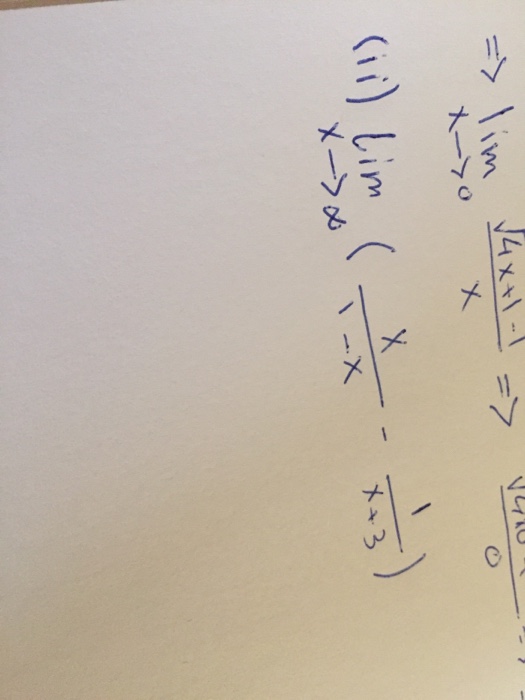 => lim x→0 (√4x+1 -1)/x =>
(ii) lim x→∞ ( x/(1-x) - 1/(x+3) )